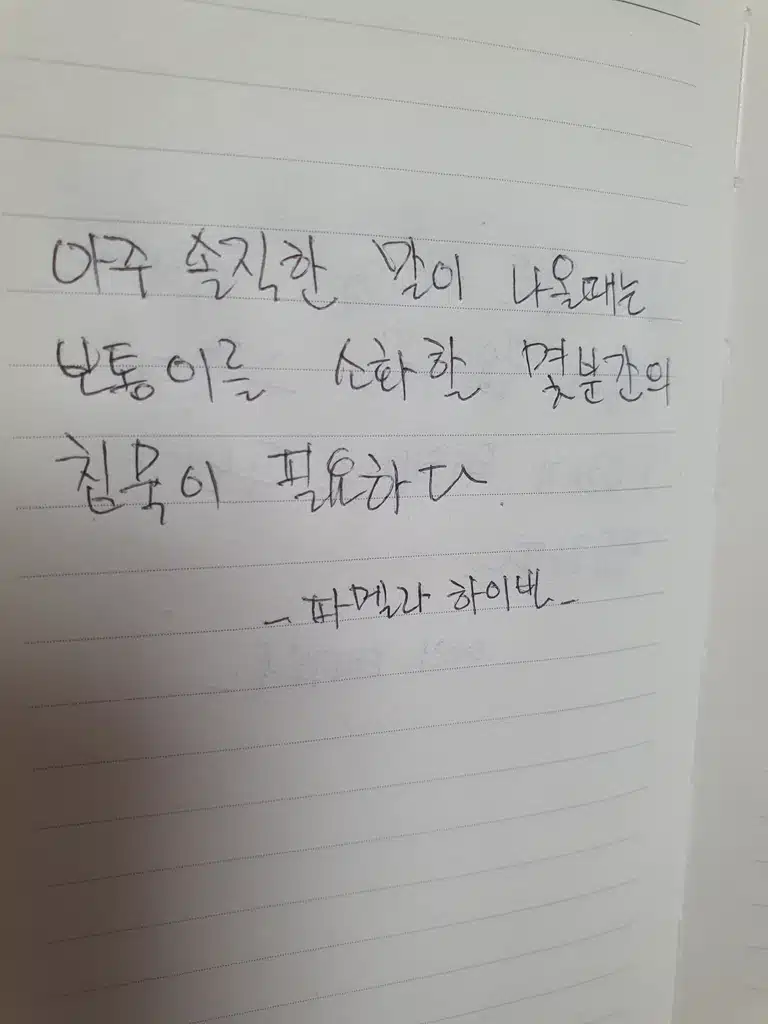 아주 솔직한 말이 나올때는
보통이를 소화할 몇분간의
침묵이 필요하다.
- 파멜라 하이밴 -